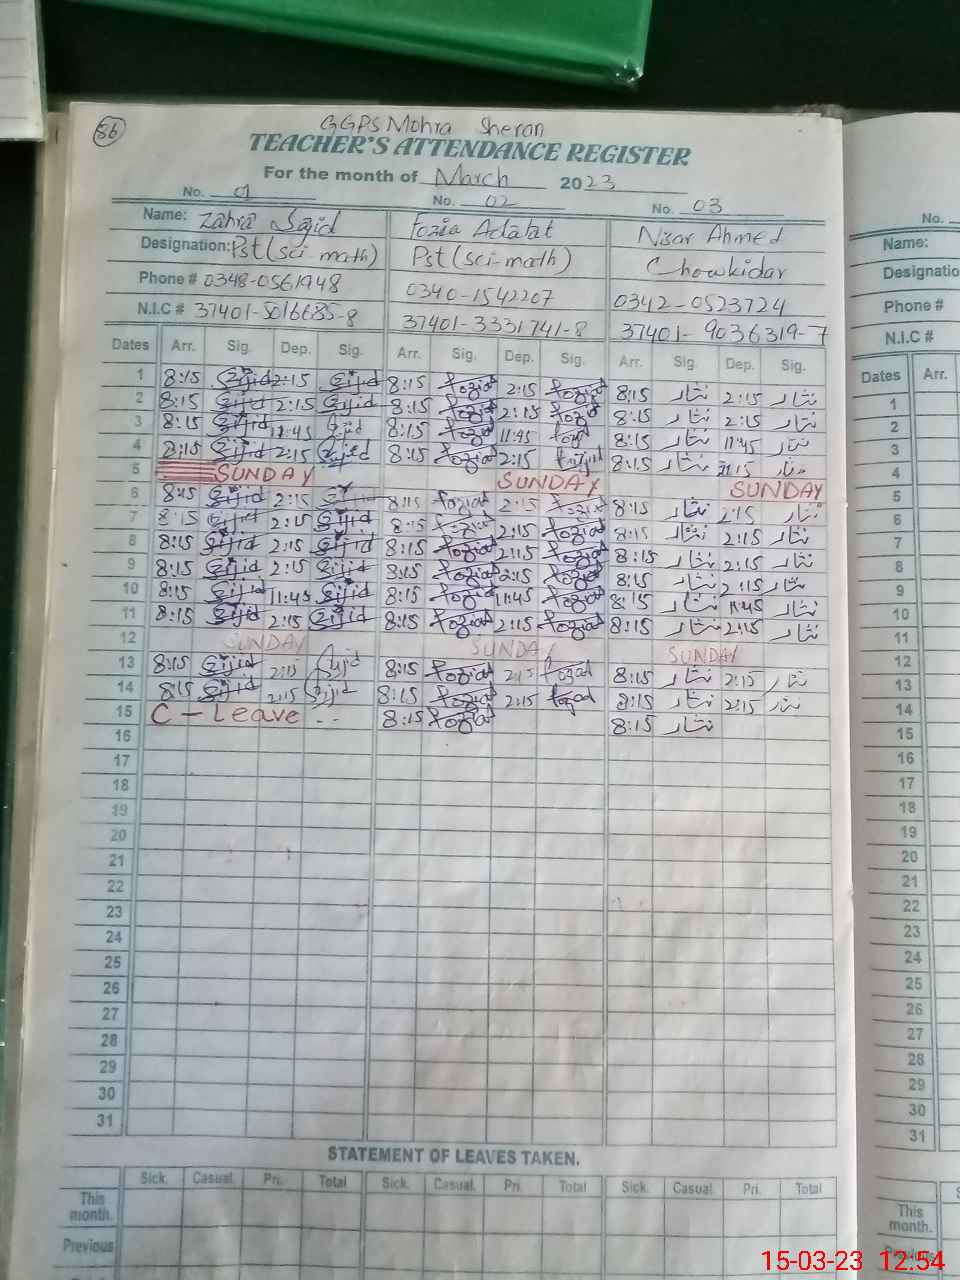 86
GGPS Mohra Sheran
TEACHER'S ATTENDANCE REGISTER
For the month of March 2023
No. 01 No. 02 No. 03
Name: Zahra Sajid Fozia Adalat Nisar Ahmed
Designation: Pst (sci-math) Pst (sci-math) Chowkidar
Phone # 0348-0561948 0340-1542207 0342-0523724
N.I.C # 37401-5016685-8 37401-3331741-8 37401-9036319-7
Dates Arr. Sig. Dep. Sig. Arr. Sig. Dep. Sig. Arr. Sig. Dep. Sig.
1 8:15 Sijid 2:15 Sijid 8:15 Foziad 2:15 Foziad 8:15 نثار 2:15 نثار
2 8:15 Sijid 2:15 Sijid 8:15 Foziad 2:15 Foziad 8:15 نثار 2:15 نثار
3 8:15 Sijid 11:45 Sijid 8:15 Foziad 11:45 8:15 نثار 11:45 نثار
4 8:15 Sijid 2:15 Sijid 8:15 Foziad 2:15 8:15 نثار 2:15 نثار
5 SUNDAY SUNDAY SUNDAY
6 8:15 Sijid 2:15 8:15 Foziad 2:15 Foziad 8:15 نثار 2:15 نثار
7 8:15 Sijid 2:15 Sijid 8:15 Foziad 2:15 Foziad 8:15 نثار 2:15 نثار
8 8:15 Sijid 2:15 Sijid 8:15 Foziad 2:15 Foziad 8:15 نثار 2:15 نثار
9 8:15 Sijid 2:15 Sijid 8:15 Foziad 2:15 Foziad 8:15 نثار 2:15 نثار
10 8:15 Sijid 11:45 Sijid 8:15 Foziad 11:45 Foziad 8:15 نثار 11:45 نثار
11 8:15 Sijid 2:15 Sijid 8:15 Foziad 2:15 Foziad 8:15 نثار 2:15 نثار
12 SUNDAY SUNDAY SUNDAY
13 8:15 Sijid 2:15 Sijid 8:15 Foziad 2:15 Fozad 8:15 نثار 2:15 نثار
14 8:15 Sijid 2:15 Sijid 8:15 Foziad 2:15 8:15 نثار 2:15 نثار
15 C - Leave 8:15 Foziad 8:15 نثار
16
17
18
19
20
21
22
23
24
25
26
27
28
29
30
31
STATEMENT OF LEAVES TAKEN.
Sick. Casual. Pri. Total Sick. Casual. Pri. Total Sick. Casual. Pri. Total
This month.
Previous
No.
Name:
Designatio
Phone #
N.I.C #
Dates Arr.
1
2
3
4
5
6
7
8
9
10
11
12
13
14
15
16
17
18
19
20
21
22
23
24
25
26
27
28
29
30
31
This month.
Previous
15-03-23 12:54